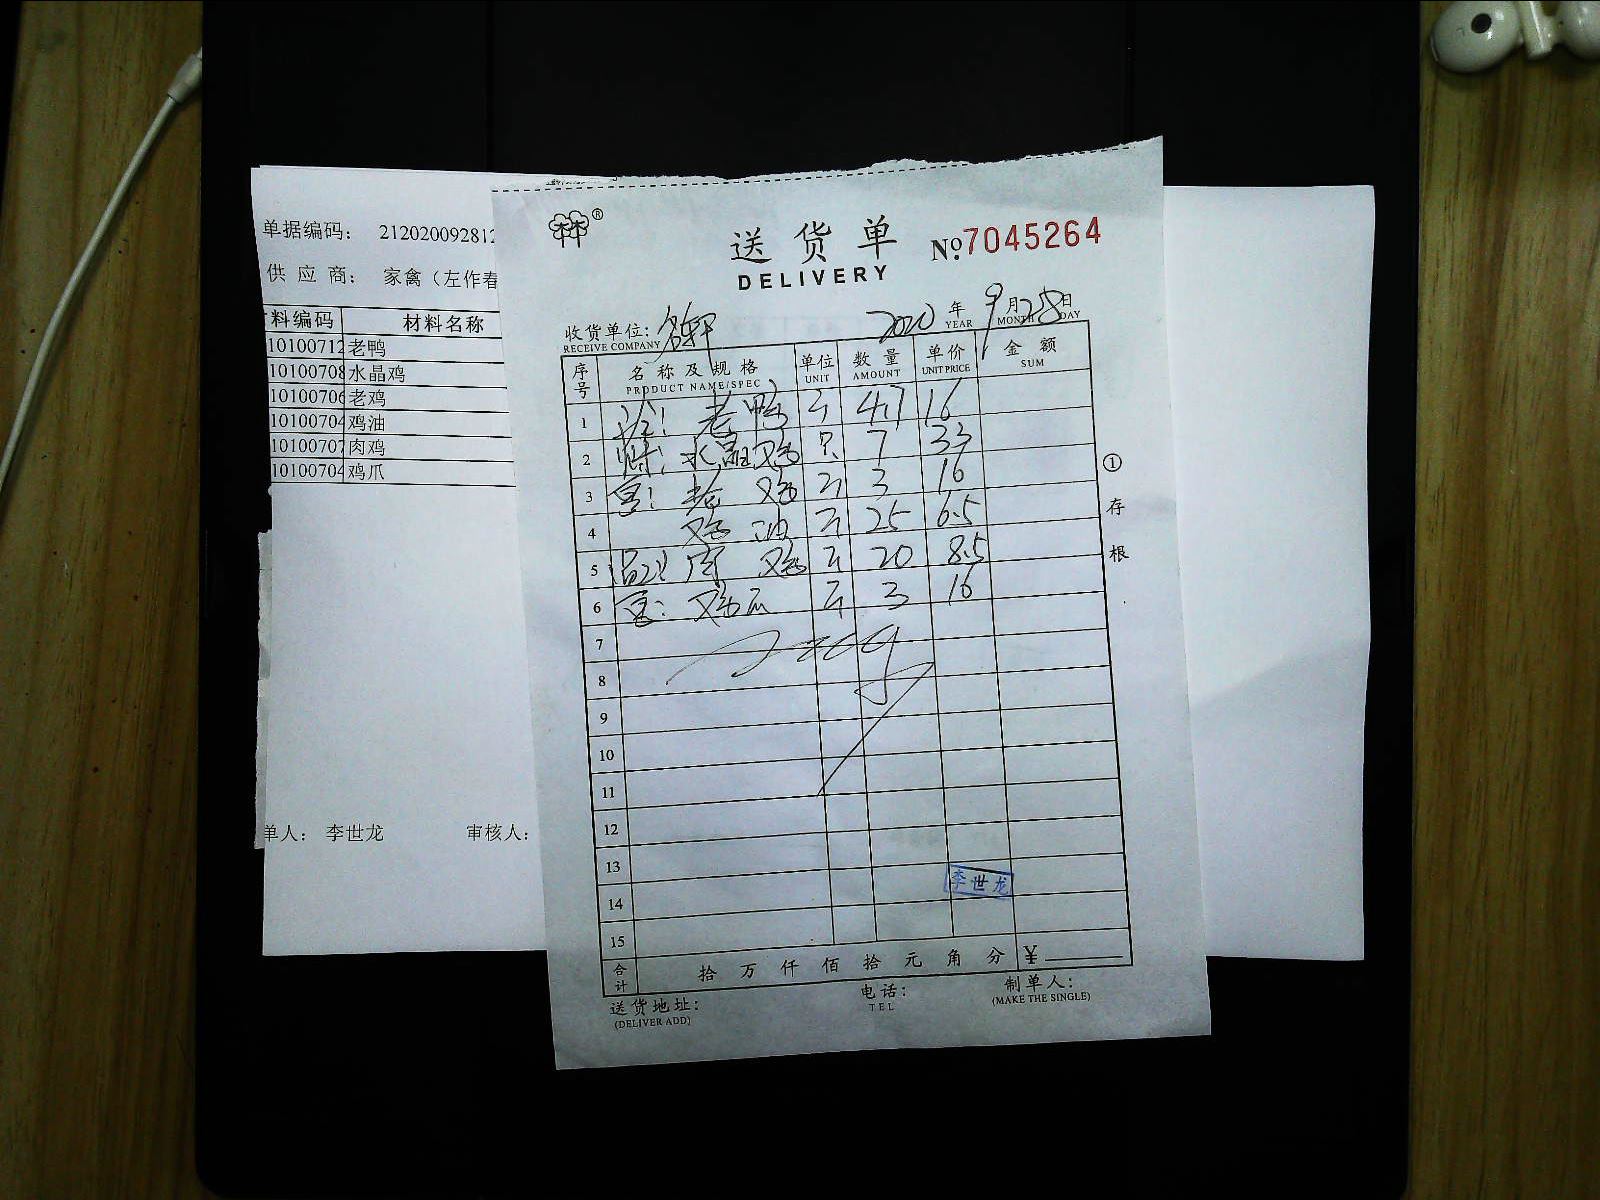 单据编码： 212020092812
供 应 商： 家禽（左作春
料编码 材料名称
10100712 老鸭
10100708 水晶鸡
10100706 老鸡
10100704 鸡油
10100707 肉鸡
10100704 鸡爪
单人： 李世龙 审核人：
林®
送货单 №7045264
DELIVERY
收货单位：名轩 2020 年 9 月 28 日
RECEIVE COMPANY YEAR MONTH DAY
序号 名称及规格 单位 数量 单价 金额
PRODUCT NAME/SPEC UNIT AMOUNT UNIT PRICE SUM
1 老鸭 斤 4.7 16
2 水晶鸡 只 7 33
3 老鸡 斤 3 16
4 鸡油 斤 25 6.5
5 肉鸡 斤 20 8.5
6 鸡爪 斤 3 16
7
8
9
10
11
12
13
14
15
李世龙
合计 拾 万 仟 佰 拾 元 角 分 ¥
送货地址： 电话： 制单人：
(DELIVER ADD) TEL (MAKE THE SINGLE)
① 存根